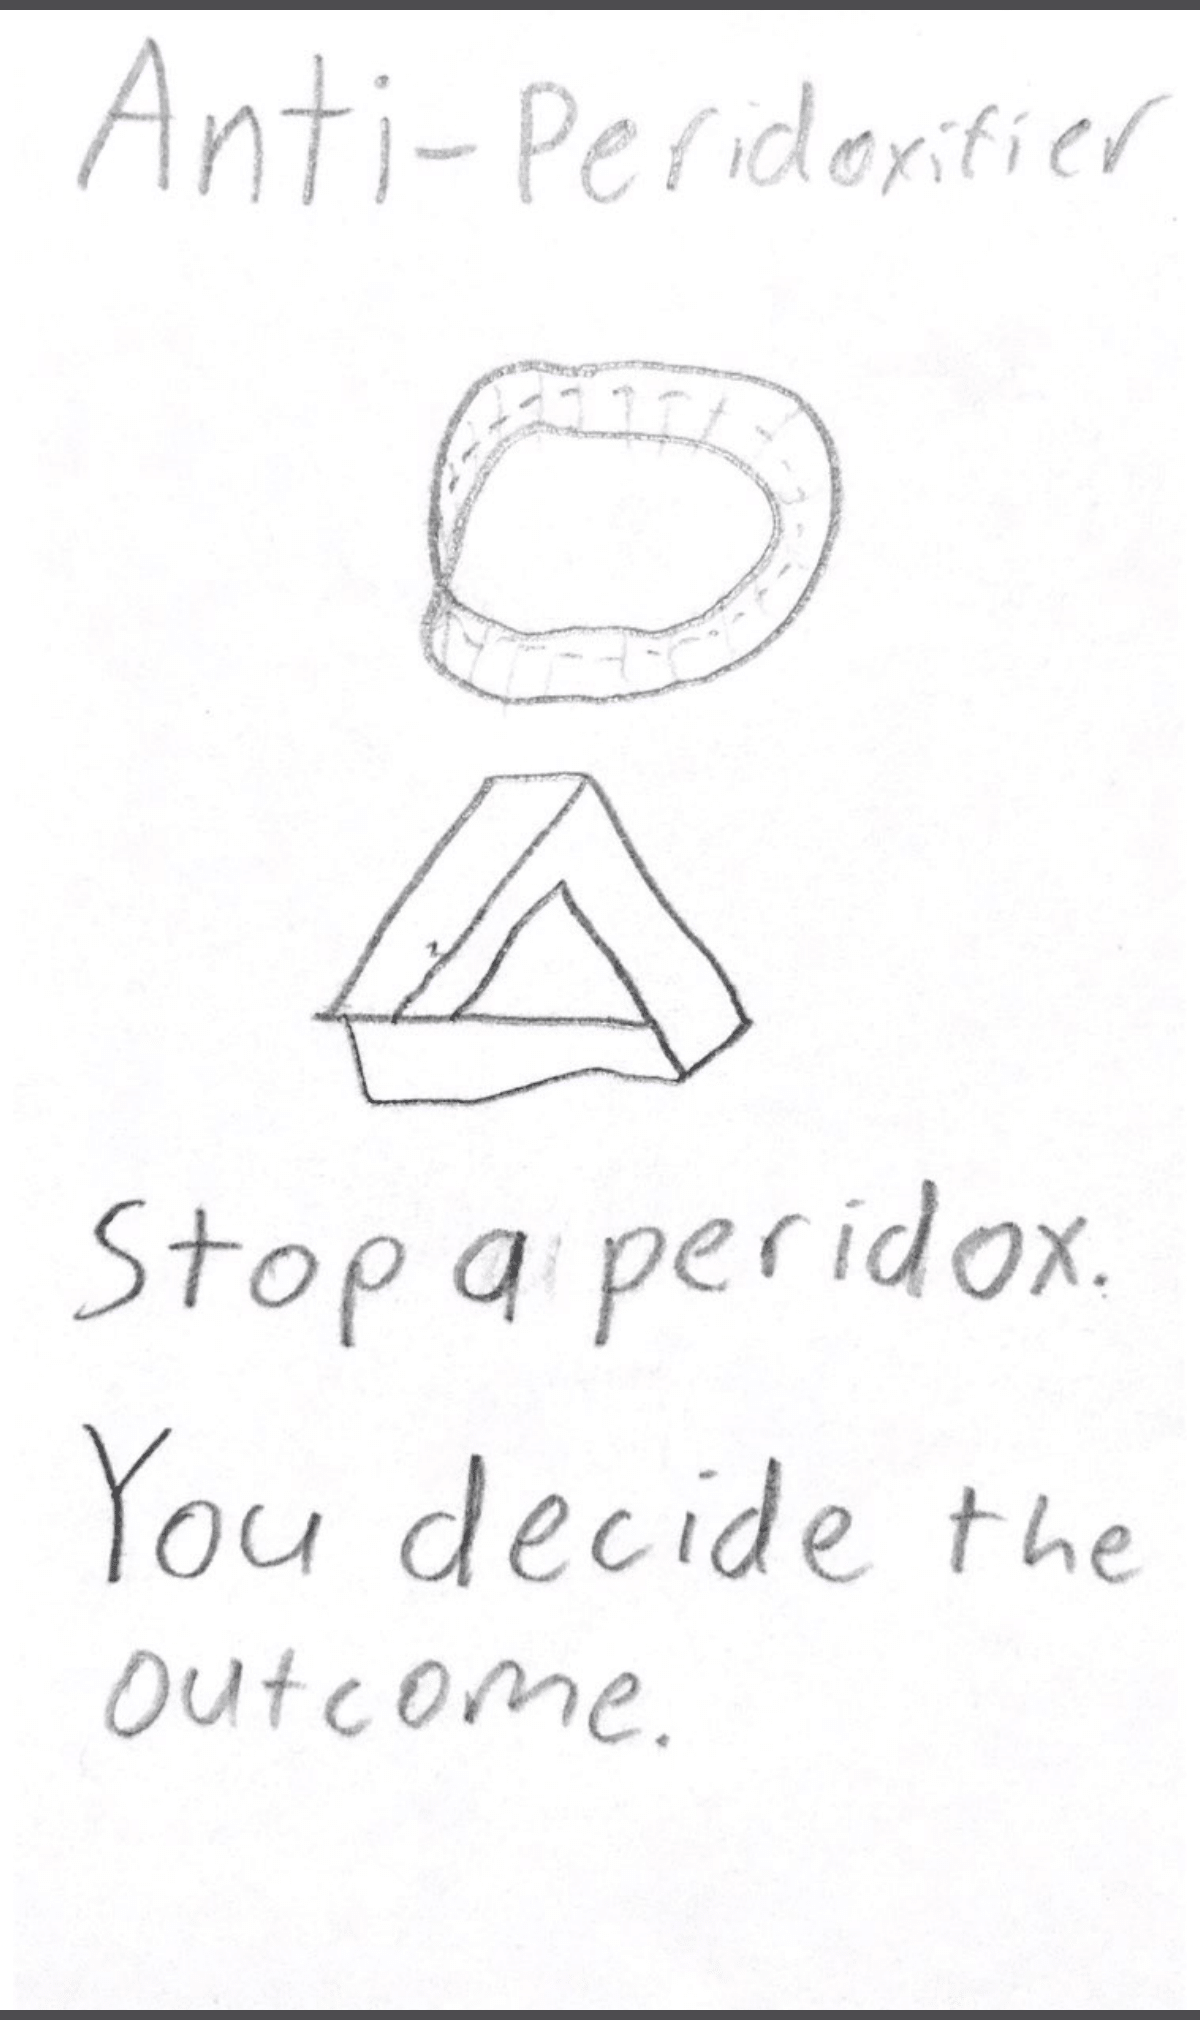 Anti-Peridoxifier
Stop a peridox.
You decide the
outcome.